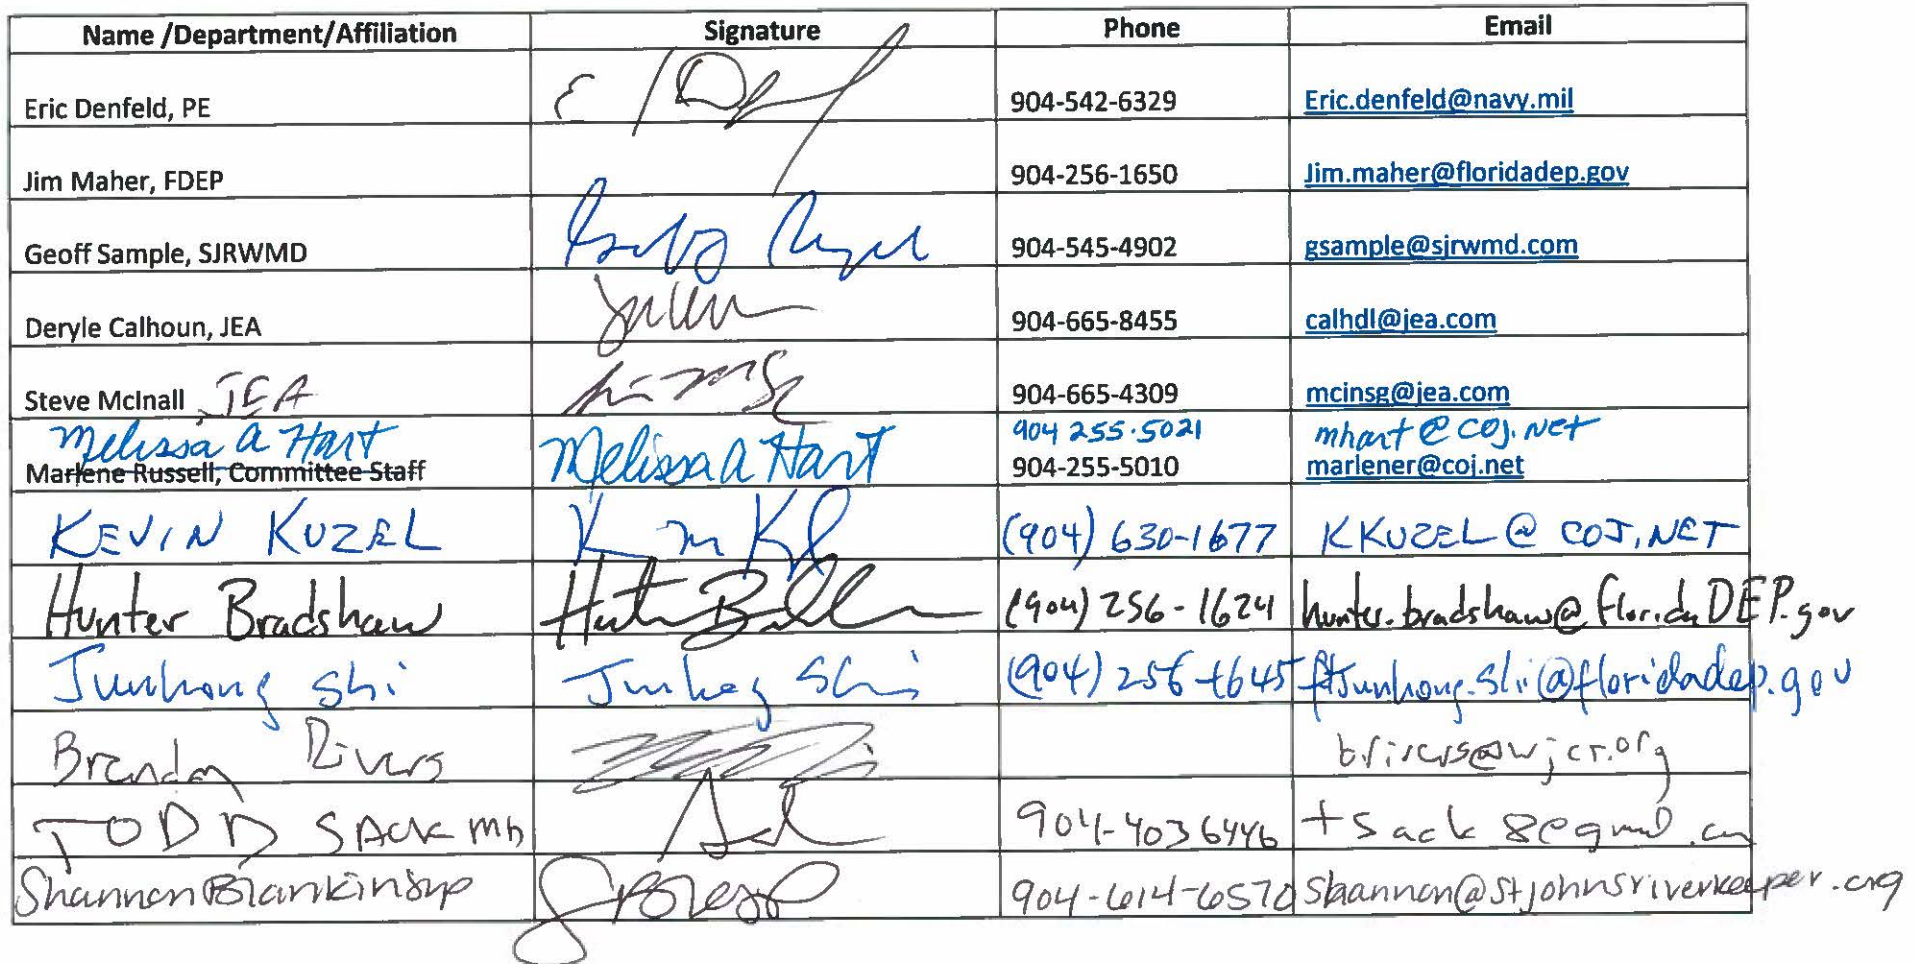 Name /Department/Affiliation Signature Phone Email
Eric Denfeld, PE 904-542-6329 Eric.denfeld@navy.mil
Jim Maher, FDEP 904-256-1650 Jim.maher@floridadep.gov
Geoff Sample, SJRWMD 904-545-4902 gsample@sjrwmd.com
Deryle Calhoun, JEA 904-665-8455 calhdl@jea.com
Steve McInall, JEA 904-665-4309 mcinsg@jea.com
Melissa A Hart Melissa A Hart 904 255.5021 mhart@coj.net
Marlene Russell, Committee Staff 904-255-5010 marlener@coj.net
KEVIN KUZEL (904) 630-1677 KKUZEL@COJ.NET
Hunter Bradshaw (904) 256-1624 hunter.bradshaw@floridaDEP.gov
Junhong Shi Junhong Shi (904) 256-1645 Junhong.Shi@floridadep.gov
Brendan Rivers brivers@wjct.org
TODD SACK MD 904-4036446 tsack8@gmail.com
Shannon Blankinship 904-614-6570 Shannon@stjohnsriverkeeper.org